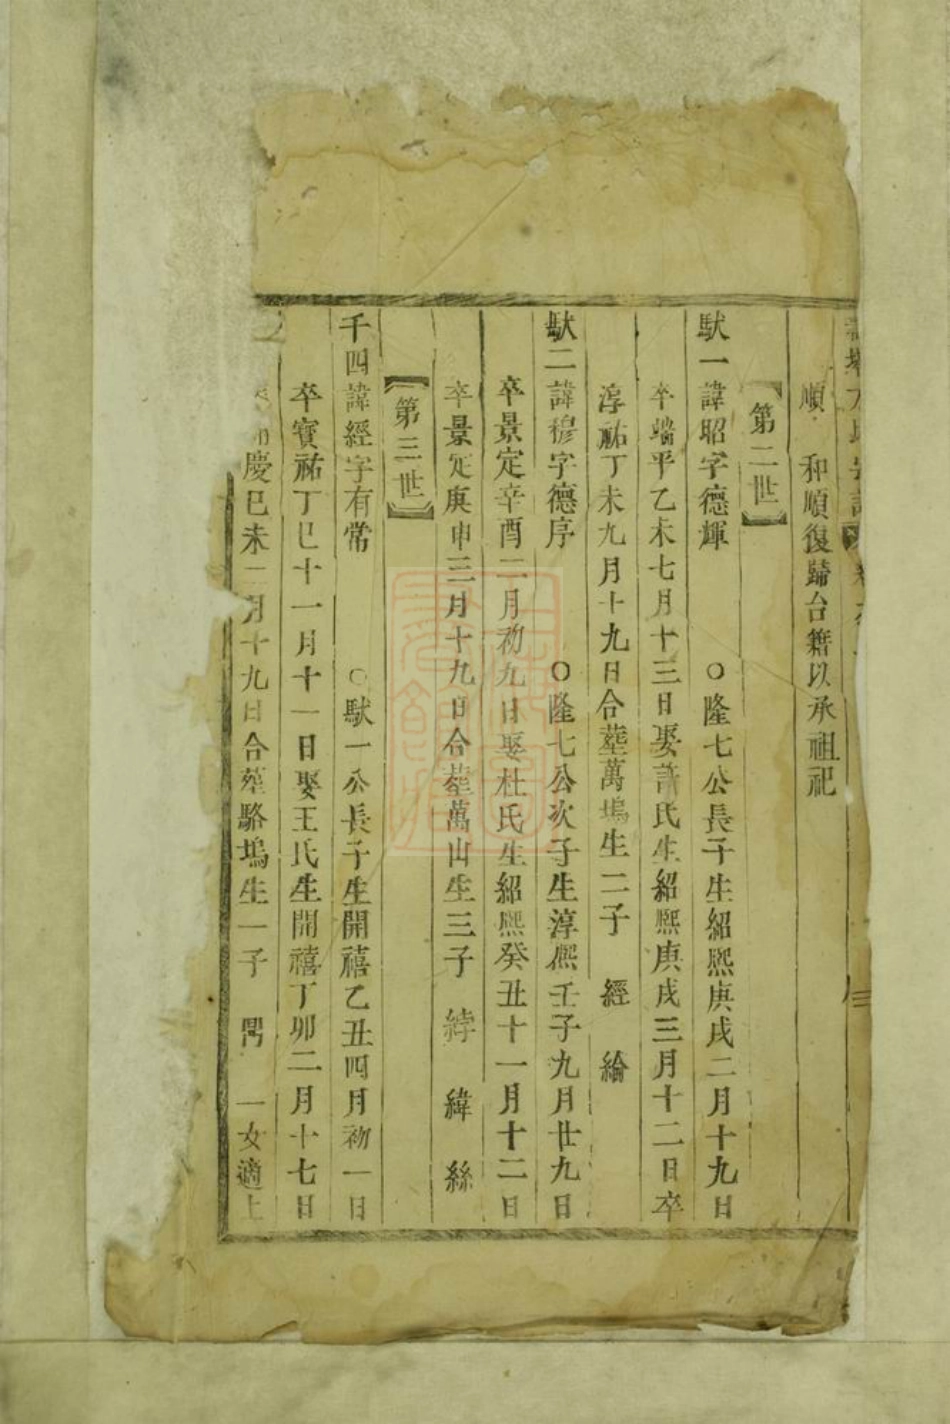 順 和順復歸台籍以承祖祀
【第二世】
馱一諱昭字德輝 ○隆七公長子生紹熙庚戌二月十九日
卒端平乙未七月十三日娶許氏生紹熙庚戌三月十二日卒
淳祐丁未九月十九日合塟萬塢生二子 經 綸
馱二諱穆字德序 ○隆七公次子生淳熙壬子九月廿九日
卒景定辛酉二月初九日娶杜氏生紹熙癸丑十一月十二日
卒景定庚申三月十九日合塟萬山生三子 綍 緯 絲
【第三世】
千四諱經字有常 ○馱一公長子生開禧乙丑四月初一日
卒寶祐丁巳十一月十一日娶王氏生開禧丁卯二月十七日
慶巳未二月十九日合塟駱塢生一子 一女適上